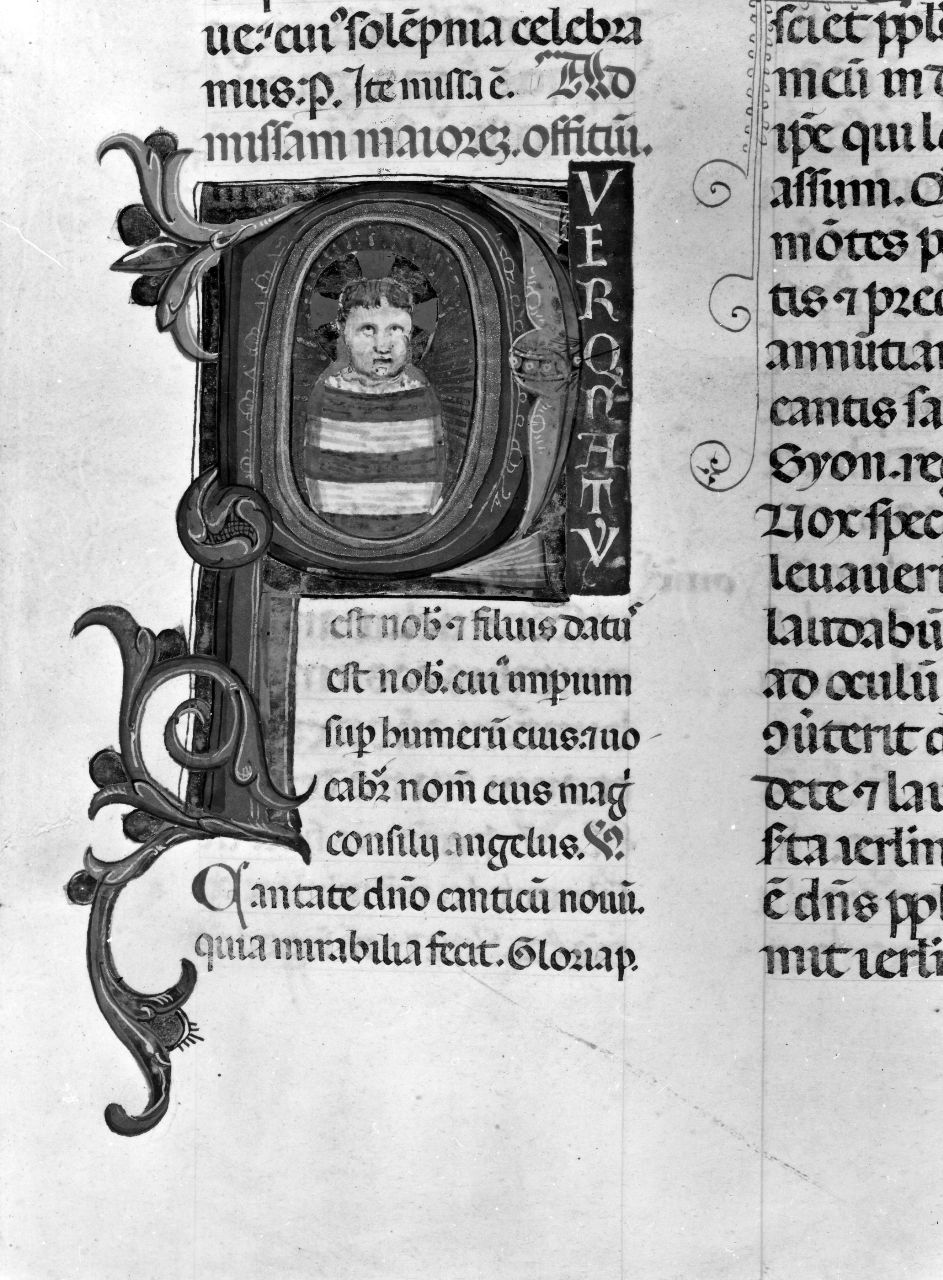 ue. cuiꝰ solẽpnia celebra
mus. p. Ite missa ẽ. Ad
missam maiorẽ. offitiũ.
P VER QNATV
est nob̃ ⁊ filius datuꝰ
est nob̃. cuiꝰ imp̃ium
sup humerũ eius. ⁊ uo
cabꝰ nom̃ eius mag̃
consilij angelus. p̃.
Cantate dño canticũ nouũ.
quia mirabilia fecit. Gloria p.
sciet ppl̃
meũ in
ip̃e qui l
assum. Q
mõtes p
tis ⁊ pred
annũtian
cantis sa
Syon. re
Uox spec
leuauer
laudabũ
ad oculũ
ꝯũterit d
dete ⁊ lau
sc̃ta ierl̃m
ẽ dñs ppl̃
mit ierl̃